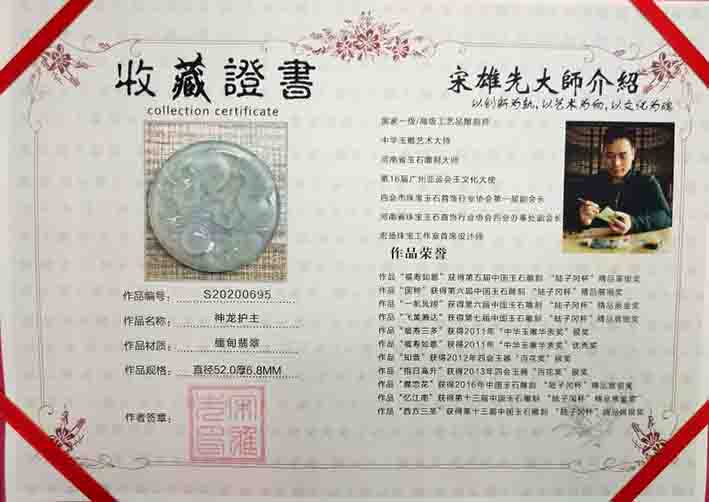 收藏證書
collection certificate
作品编号: S20200695
作品名称: 神龙护主
作品材质: 缅甸翡翠
作品规格: 直径52.0厚6.8MM
作者签章:
宋雄先大師介紹
以创新为轨,以艺术为物,以文化为魂
国家一级/高级工艺品雕刻师
中华玉雕艺术大师
河南省玉石雕刻大师
第16届广州亚运会玉文化大使
四会市珠宝玉石首饰行业协会第一届副会长
河南省珠宝玉石首饰行业协会四会办事处副会长
宏扬珠宝工作室首席设计师
作品荣誉
作品“福寿如意”获得第五届中国玉石雕刻 “陆子冈杯”精品
作品 获得第六届中国玉石雕刻 “陆子冈杯”精品
作品“一帆风顺”获得第六届中国玉石雕刻 “陆子冈杯”精品
作品“飞黄腾达”获得第七届中国玉石雕刻 “陆子冈杯”精品
作品“福寿三多”获得2011年“中华玉雕华表奖”银奖
作品“福寿如意”获得2011年“中华玉雕华表奖”优秀奖
作品“知音”获得2012年四会玉器“百花奖”银奖
作品“指日高升”获得2013年四会玉器“百花奖”银奖
作品 获得2016年中国玉石雕刻“陆子冈杯”精品
作品“忆江南”获得第十三届中国玉石雕刻 “陆子冈杯”精品
作品“西方三圣”获得第十三届中国玉石雕刻 “陆子冈杯”精品